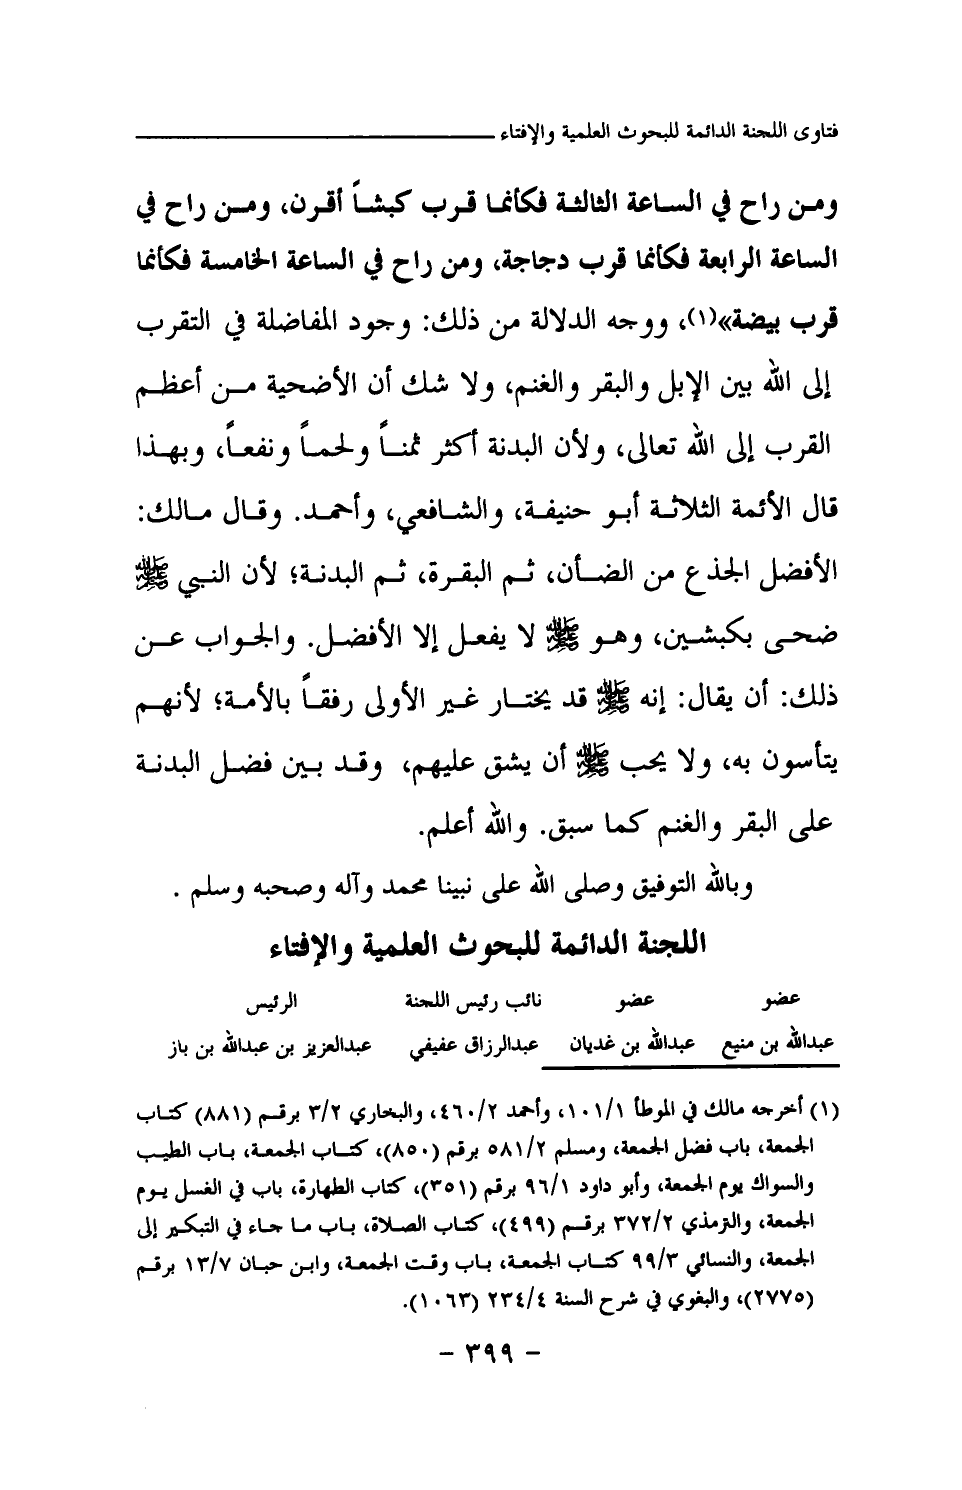 فتاوى اللجنة الدائمة للبحوث العلمية والإفتاء
ومن راح في الساعة الثالثة فكأنما قرب كبشاً أقرن، ومن راح في
الساعة الرابعة فكأنما قرب دجاجة، ومن راح في الساعة الخامسة فكأنما
قرب بيضة»(١)، ووجه الدلالة من ذلك: وجود المفاضلة في التقرب
إلى الله بين الإبل والبقر والغنم، ولا شك أن الأضحية من أعظم
القرب إلى الله تعالى، ولأن البدنة أكثر ثمناً ولحماً ونفعاً، وبهذا
قال الأئمة الثلاثة أبو حنيفة، والشافعي، وأحمد. وقال مالك:
الأفضل الجذع من الضأن، ثم البقرة، ثم البدنة؛ لأن النبي ﷺ
ضحى بكبشين، وهو ﷺ لا يفعل إلا الأفضل. والجواب عن
ذلك: أن يقال: إنه ﷺ قد يختار غير الأولى رفقاً بالأمة؛ لأنهم
يتأسون به، ولا يحب ﷺ أن يشق عليهم، وقد بين فضل البدنة
على البقر والغنم كما سبق. والله أعلم.
وبالله التوفيق وصلى الله على نبينا محمد وآله وصحبه وسلم .
اللجنة الدائمة للبحوث العلمية والإفتاء
عضو عضو نائب رئيس اللجنة الرئيس
عبدالله بن منيع عبدالله بن غديان عبدالرزاق عفيفي عبدالعزيز بن عبدالله بن باز
(١) أخرجه مالك في الموطأ ١٠١/١، وأحمد ٤٦٠/٢، والبخاري ٣/٢ برقم (٨٨١) كتاب
الجمعة، باب فضل الجمعة، ومسلم ٥٨١/٢ برقم (٨٥٠)، كتاب الجمعة، باب الطيب
والسواك يوم الجمعة، وأبو داود ٩٦/١ برقم (٣٥١)، كتاب الطهارة، باب في الغسل يوم
الجمعة، والترمذي ٣٧٢/٢ برقم (٤٩٩)، كتاب الصلاة، باب ما جاء في التبكير إلى
الجمعة، والنسائي ٩٩/٣ كتاب الجمعة، باب وقت الجمعة، وابن حبان ١٣/٧ برقم
(٢٧٧٥)، والبغوي في شرح السنة ٢٣٤/٤ (١٠٦٣).
- ٣٩٩ -